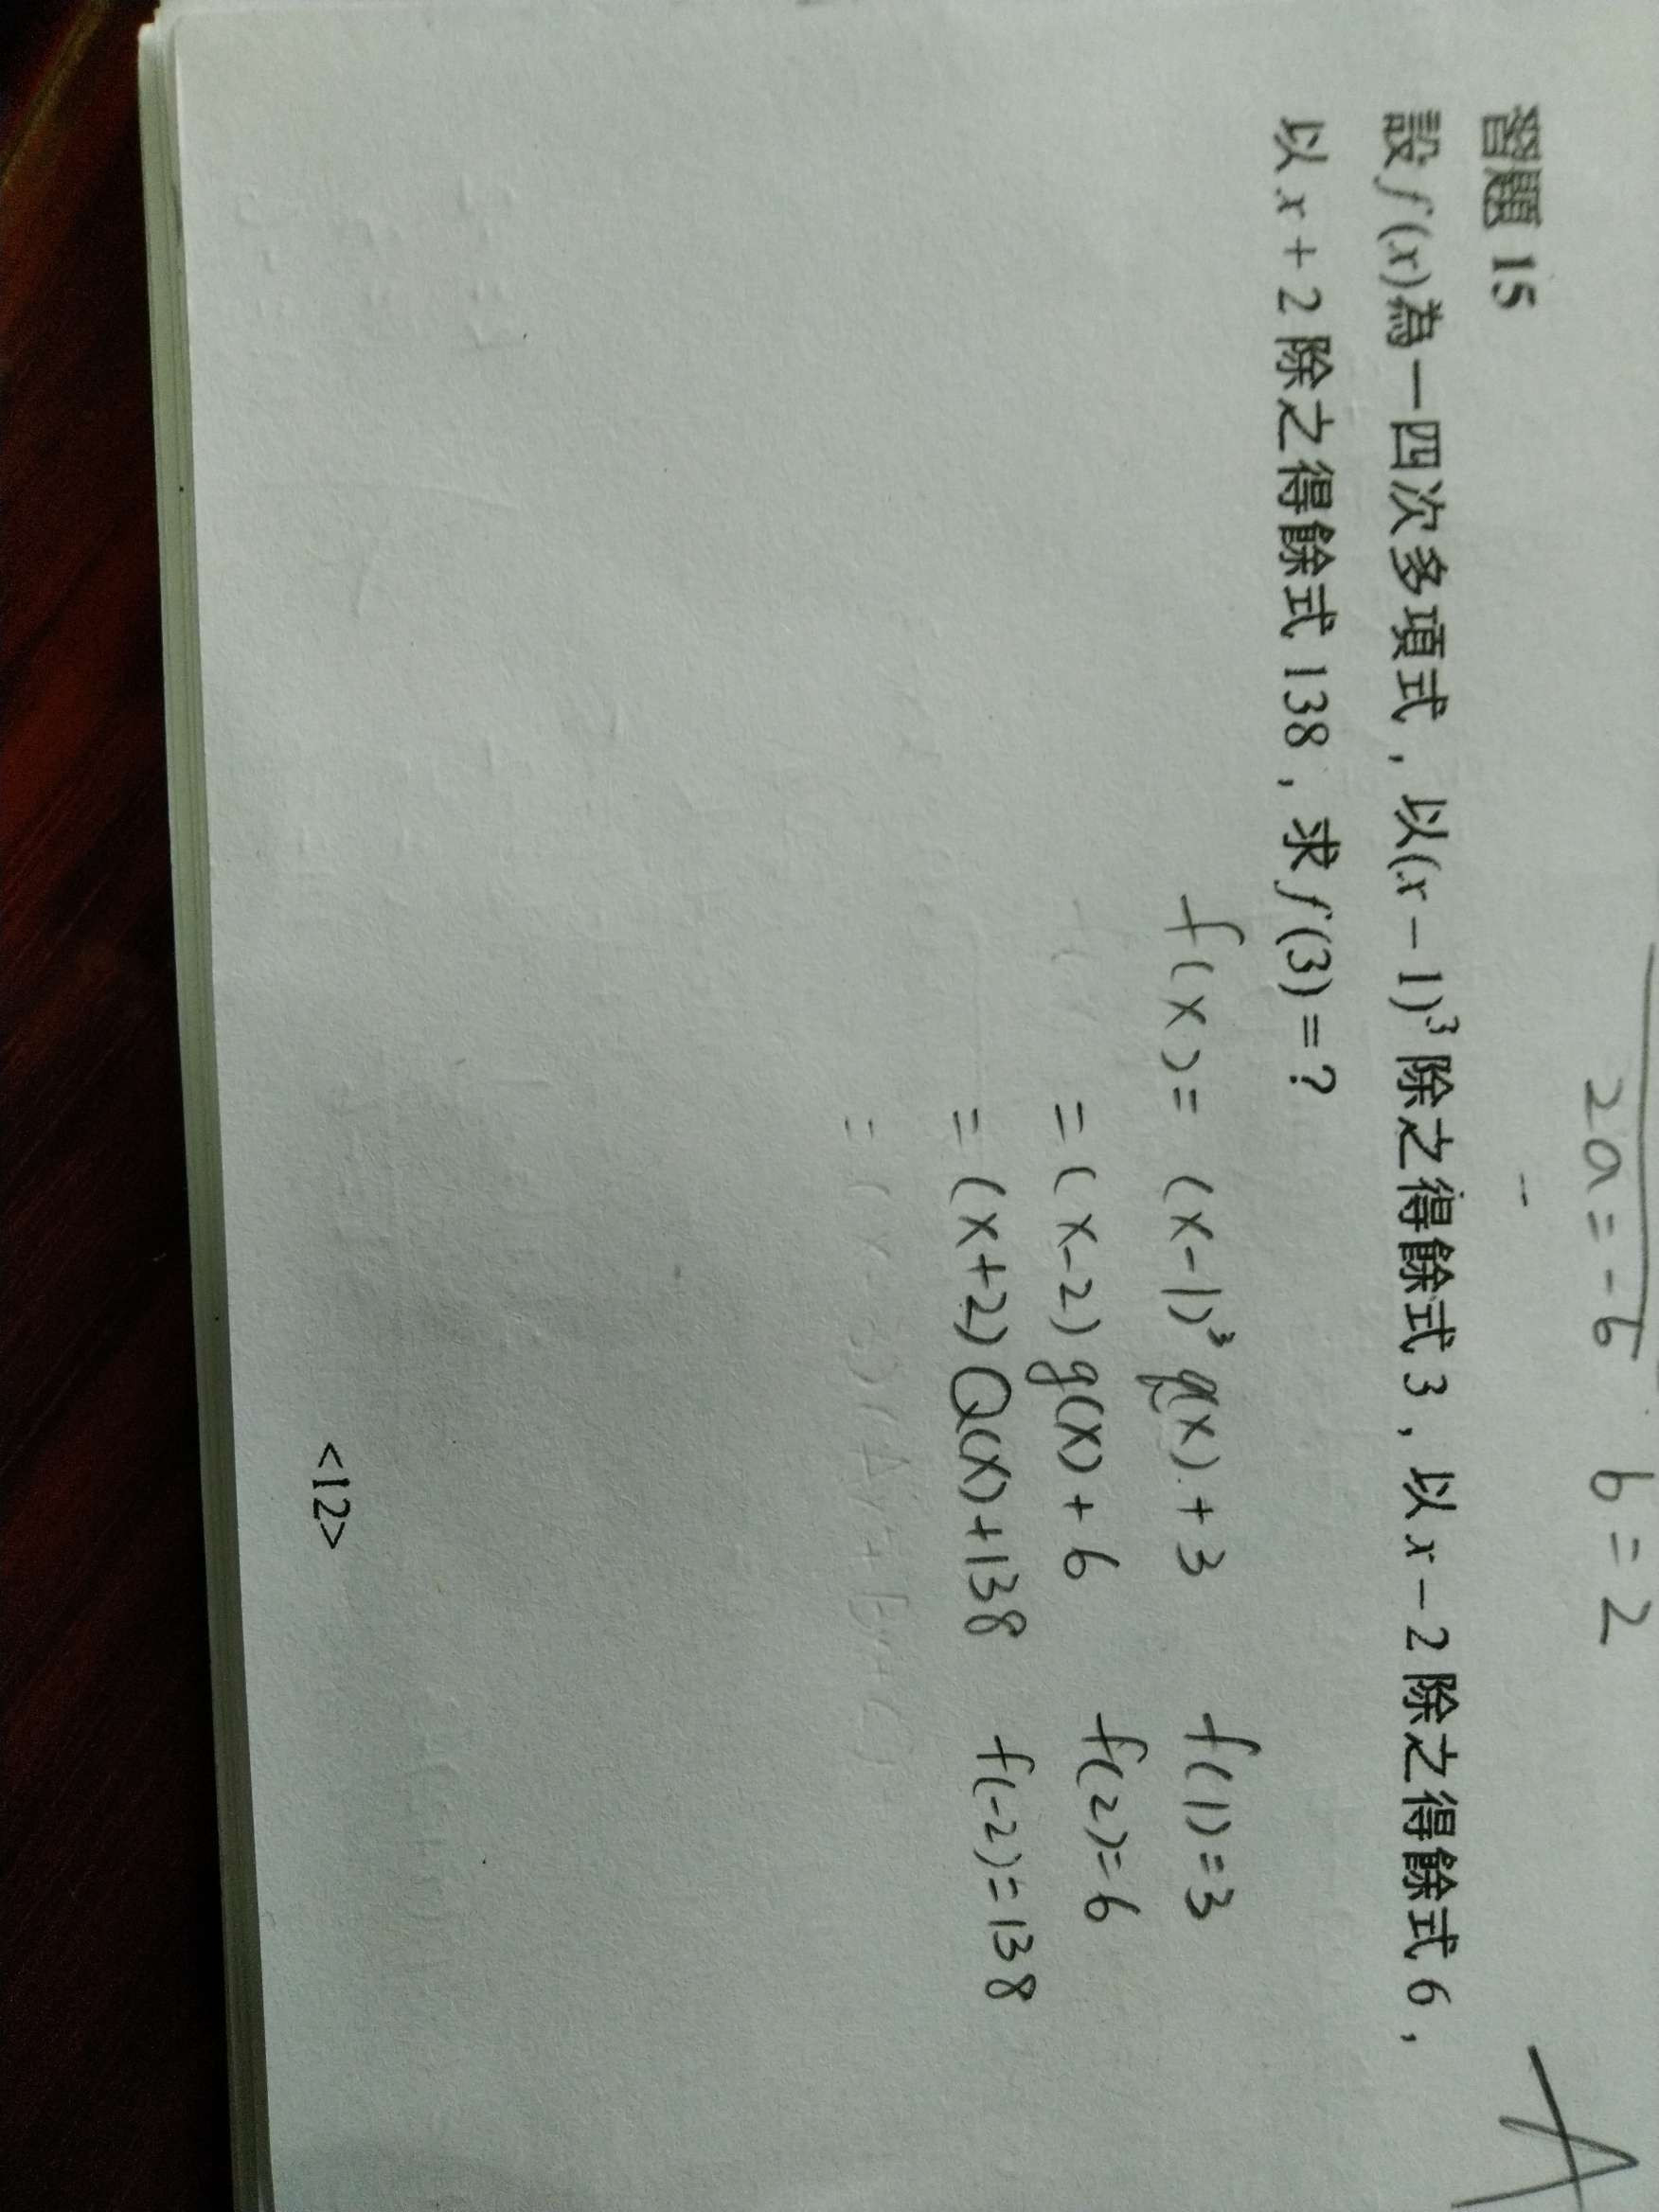 2a=-6 b=2
習題 15
設f(x)為一四次多項式，以(x－1)³除之得餘式3，以x－2除之得餘式6，
以x＋2除之得餘式138，求f(3)=?
f(x)= (x-1)³ q(x)+3 f(1)=3
=(x-2)g(x)+6 f(2)=6
=(x+2)Q(x)+138 f(-2)=138
<12>